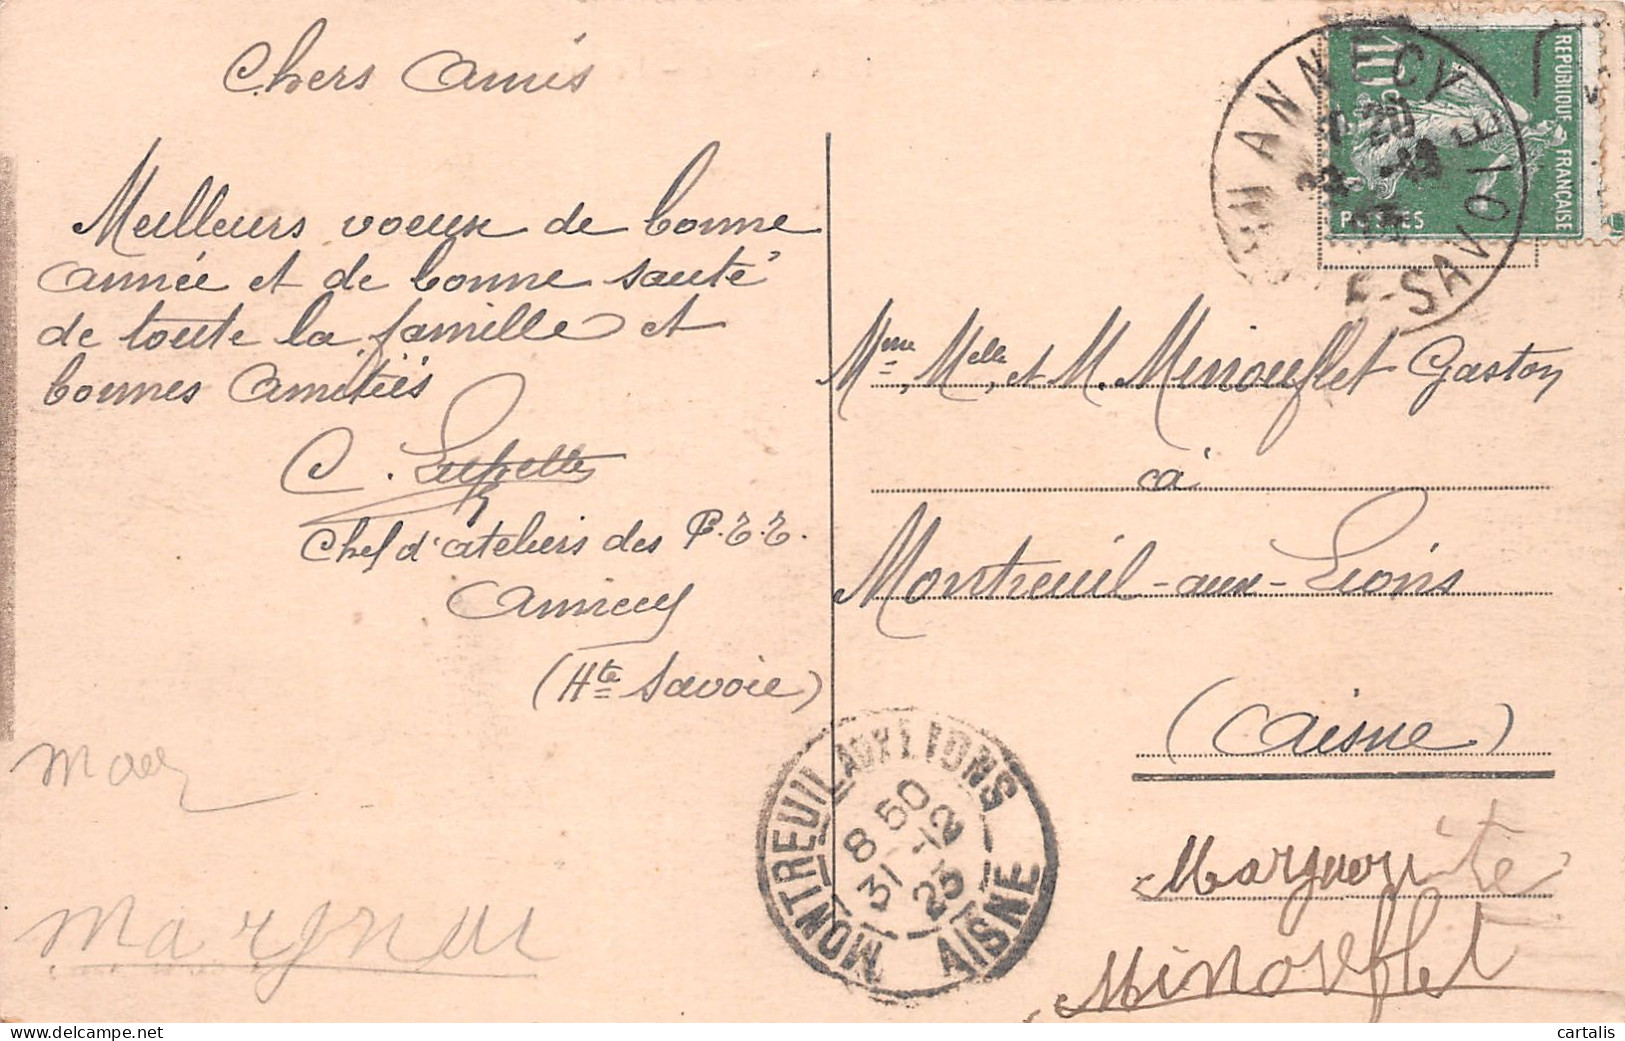 Chers Amis
Meilleurs voeux de bonne
année et de bonne santé
de toute la famille et
bonnes amitiés
C.
Chef d'ateliers des P.T.T.
Annecy
(Hte Savoie)
Margue
ANNECY
Hte-SAVOIE
REPUBLIQUE FRANÇAISE
10c
POSTES
Mme, Melle, et M. Minouflet Gaston
à
Montreuil-aux-Lions
(Aisne)
MONTREUIL-AUX-LIONS
8 50
31 -12
23
AISNE
Marguerite
Minouflet
cartalis